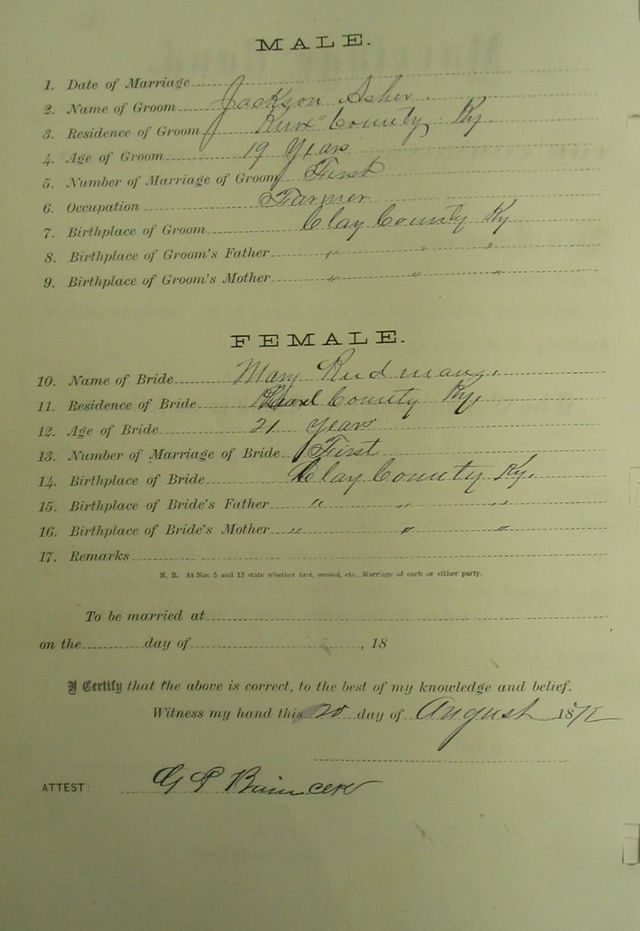 MALE.
1. Date of Marriage
2. Name of Groom Jackson Asher
3. Residence of Groom Knox County Ky
4. Age of Groom 19 Years
5. Number of Marriage of Groom First
6. Occupation Farmer
7. Birthplace of Groom Clay County Ky
8. Birthplace of Groom's Father " " "
9. Birthplace of Groom's Mother " " "
FEMALE.
10. Name of Bride Mary
11. Residence of Bride County Ky,
12. Age of Bride 21 Years
13. Number of Marriage of Bride First
14. Birthplace of Bride Clay County Ky.
15. Birthplace of Bride's Father " " "
16. Birthplace of Bride's Mother " " "
17. Remarks
N. B. At Nos. 5 and 13 state whether first, second, etc., Marriage of each or either party.
To be married at
on the day of , 18
I Certify that the above is correct, to the best of my knowledge and belief.
Witness my hand this 20 day of August 187
ATTEST: G P